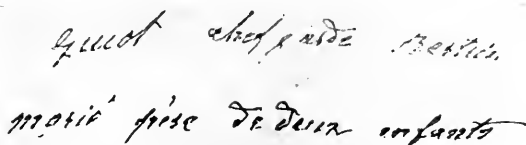 Guiot chef garde Bestin
marié père de deux enfants